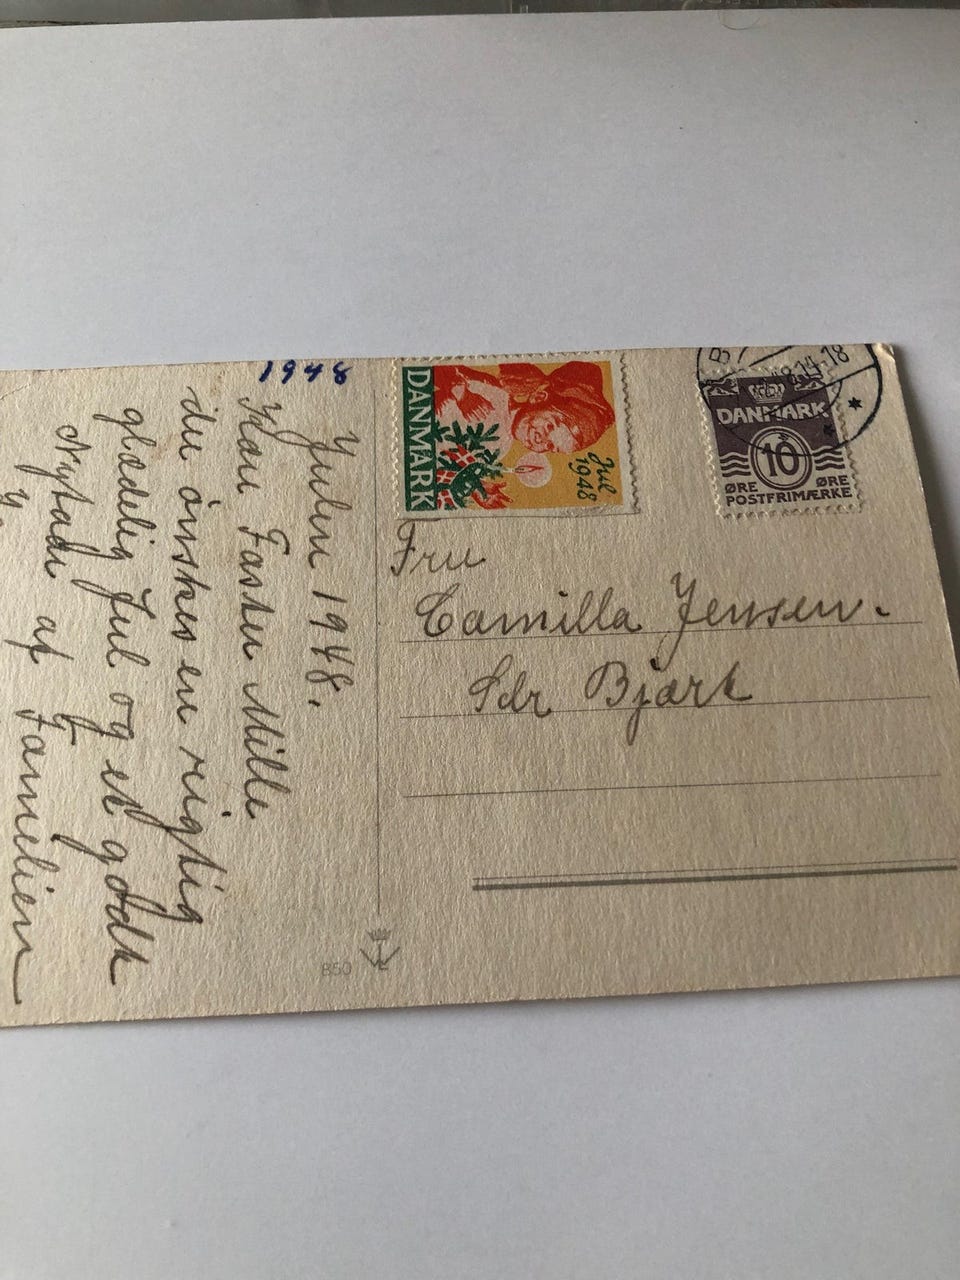 1948
Julen 1948.
Kære Faster Mille
du önskes en rigtig
glædelig Jul og et godt
Nytaar af Familien
DANMARK
Jul
1948
B
8.14-18
DANMARK
10
ØRE ØRE
POSTFRIMÆRKE
Fru
Camilla Jensen.
Sdr Bjært
B50